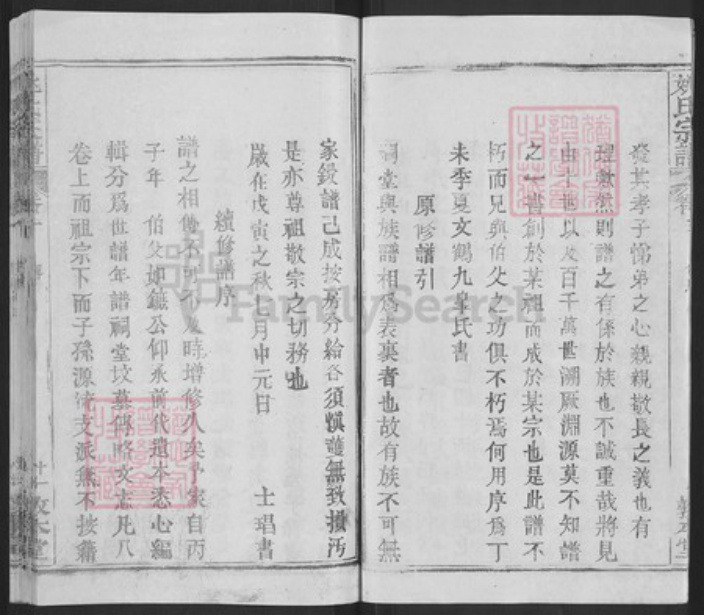 姚氏宗譜
發其孝子悌弟之心親親敬長之義也有
理歟然則譜之有係於族也不誠重哉將見
由十世以及百千萬世溯厥淵源莫不知譜
之一書創於某祖而成於某宗也是此譜不
朽而兄與伯父之功俱不朽焉何用序為丁
未季夏文鶴九皋氏書
原修譜引
祠堂與族譜相為表裏者也故有族不可無
家鋟譜已成按房分給各須慎護無致損汚
是亦尊祖敬宗之切務也
歲在戊寅之秋七月中元日 士琩書
續修譜序
譜之相傳不可不及時增修久矣予家自丙
子年 伯父如鑣公仰承前代遺本悉心編
輯分爲世譜年譜祠堂墳墓傳略文志凡八
卷上而祖宗下而子孫源流支派無不按籍
FamilySearch